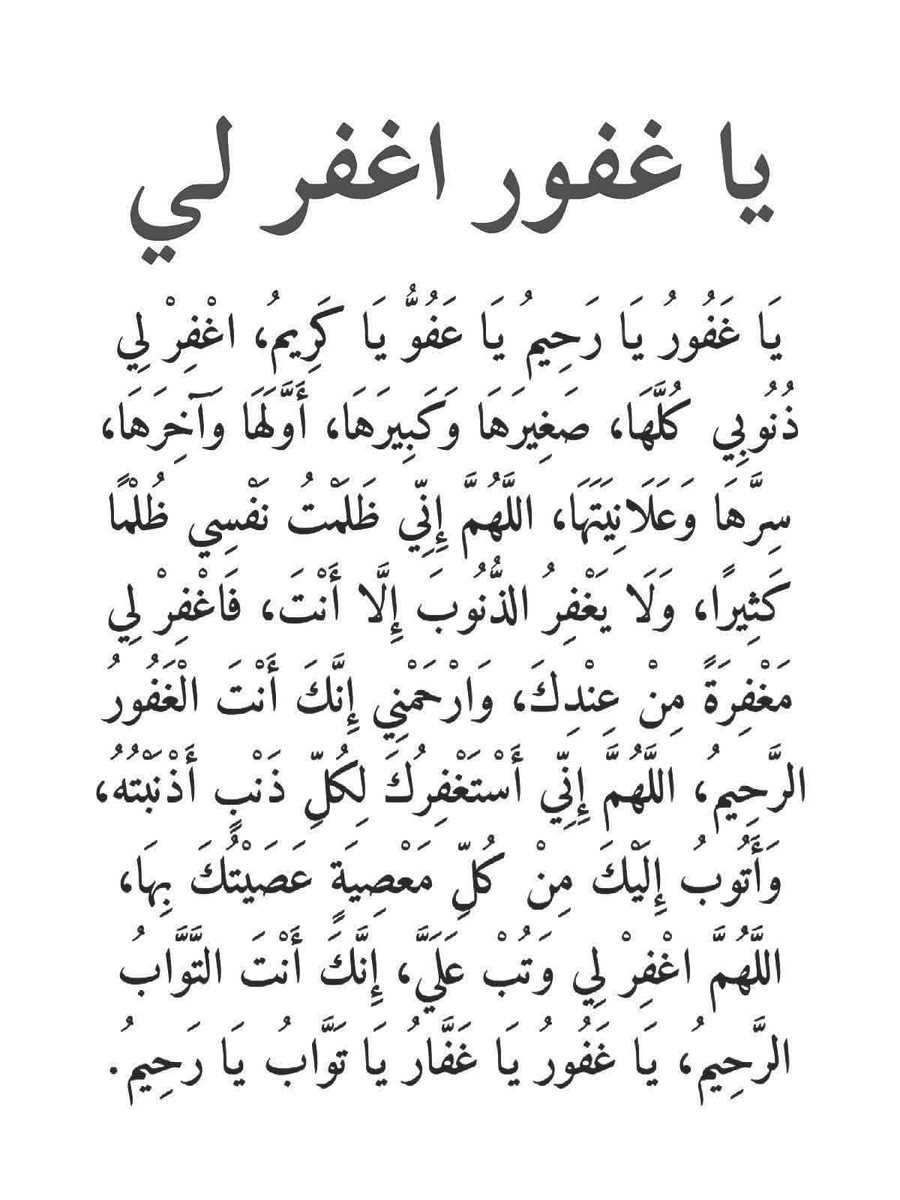 يا غفور اغفر لي
يَا غَفُورُ يَا رَحِيمُ يَا عَفُوُّ يَا كَرِيمُ، اغْفِرْ لِي
ذُنُوبِي كُلَّهَا، صَغِيرَهَا وَكَبِيرَهَا، أَوَّلَهَا وَآخِرَهَا،
سِرَّهَا وَعَلَانِيَتَهَا، اللَّهُمَّ إِنِّي ظَلَمْتُ نَفْسِي ظُلْمًا
كَثِيرًا، وَلَا يَغْفِرُ الذُّنُوبَ إِلَّا أَنْتَ، فَاغْفِرْ لِي
مَغْفِرَةً مِنْ عِنْدِكَ، وَارْحَمْنِي إِنَّكَ أَنْتَ الْغَفُورُ
الرَّحِيمُ، اللَّهُمَّ إِنِّي أَسْتَغْفِرُكَ لِكُلِّ ذَنْبٍ أَذْنَبْتُهُ،
وَأَتُوبُ إِلَيْكَ مِنْ كُلِّ مَعْصِيَةٍ عَصَيْتُكَ بِهَا،
اللَّهُمَّ اغْفِرْ لِي وَتُبْ عَلَيَّ، إِنَّكَ أَنْتَ التَّوَّابُ
الرَّحِيمُ، يَا غَفُورُ يَا غَفَّارُ يَا تَوَّابُ يَا رَحِيمُ.